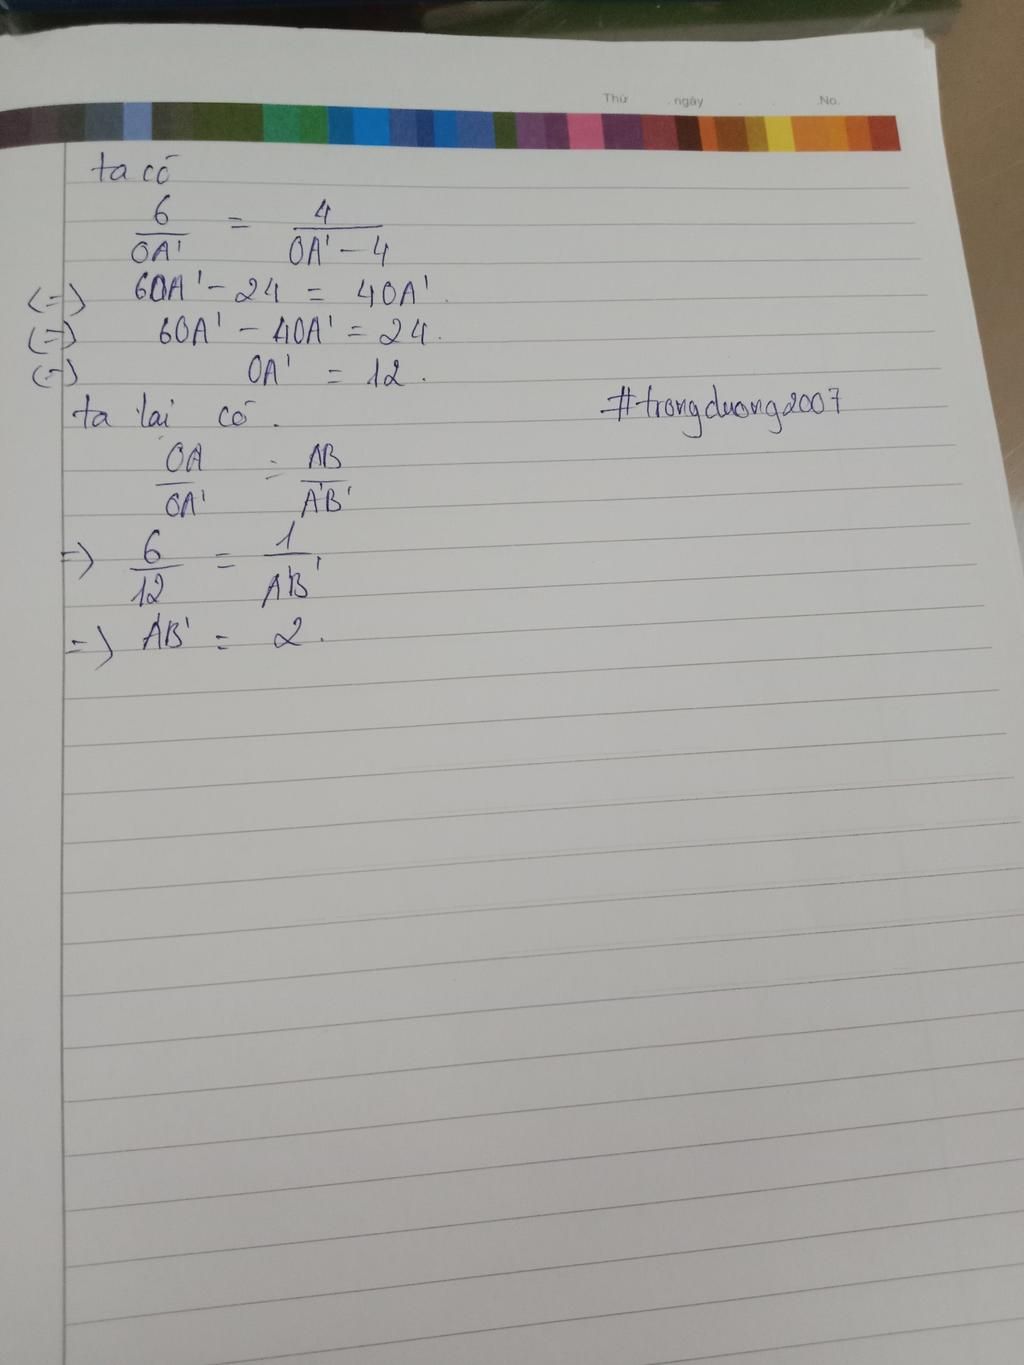 Thứ ngày .No.
ta có
6/OA' = 4/OA' - 4
(=) 6OA' - 24 = 4OA'.
(=) 6OA' - 4OA' = 24.
(=) OA' = 12.
ta lại có. #trongduong2007
OA/OA' = AB/A'B'
=) 6/12 = 1/A'B'
=) A'B' = 2.